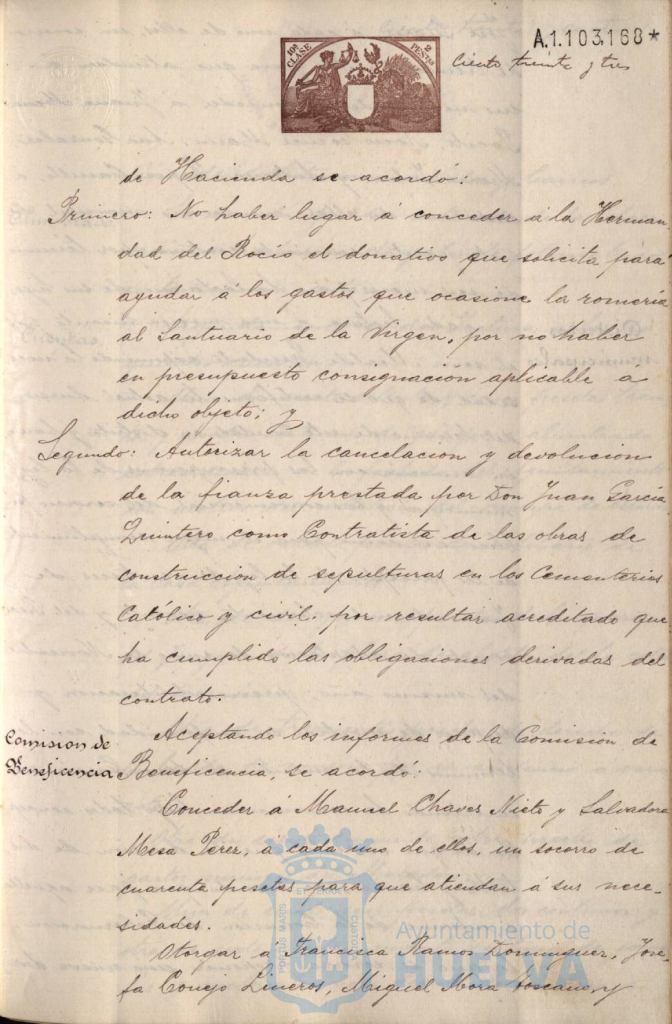 10ª CLASE
2 PESETAS
A.1.103,168*
Ciento treinta y tres
de Hacienda se acordó:
Primero: No haber lugar á conceder á la Herman-
dad del Rocio el donativo que solicita para
ayudar á los gastos que ocasione la romería
al Santuario de la Virgen, por no haber
en presupuesto consignación aplicable á
dicho objeto; y
Segundo: Autorizar la cancelacion y devolucion
de la fianza prestada por Don Juan García
Quintero como Contratista de las obras de
construccion de sepulturas en los Cementerios
Católico y civil. por resultar acreditado que
ha cumplido las obligaciones derivadas del
contrato.
Comision de
Beneficencia
Aceptando los informes de la Comisión de
Beneficencia, se acordó:
Conceder á Manuel Chaves Nieto y Salvadora
Mesa Perez, á cada uno de ellos, un socorro de
cuarenta pesetas para que atiendan á sus nece-
sidades.
Otorgar á Francisca Ramos Dominguez, Jose-
fa Conejo Lineros, Miguel Mora Toscano, y
PORTUS MARIS ET TERRAE CUSTODIA
Ayuntamiento de
HUELVA